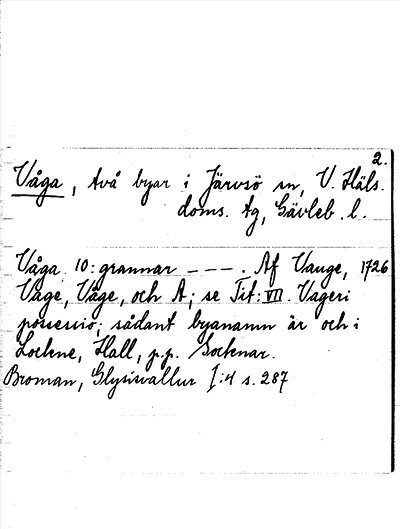 2.
Våga, två byar i Järvsö sn, V. Häls.
doms. tg, Gävleb. l.
Våga 10: grannar _ _ _ . Af Vauge, 1726
Våge, Våge, och A; se Tit: VII. Vageri
possessio; sådant byanamn är och i
Lockne, Hall, p.p. Socknar.
Broman, Glysisvallur I:4 s. 287